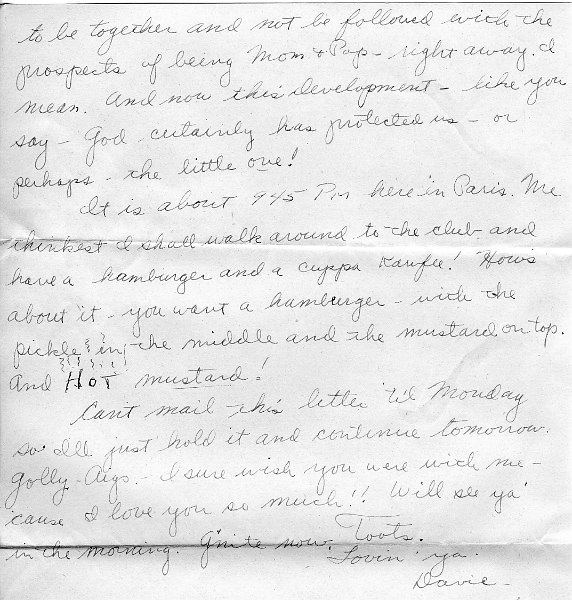 to be together and not be followed with the
prospects of being Mom & Pop - right away. I
mean. And now this development - like you
say - God certainly has protected us - or
perhaps - the little one!
It is about 945 PM here in Paris. Me
thinkest I shall walk around to the club and
have a hamburger and a cuppa kaufee! How's
about it - you want a hamburger - with the
pickle in the middle and the mustard on top.
And HOT mustard!
Can't mail this letter 'til Monday
so I'll just hold it and continue tomorrow.
Golly - I sure wish you were with me -
'cause I love you so much!! Will see ya'
in the morning. G'nite now, Toots.
Lovin' ya.
Davie -